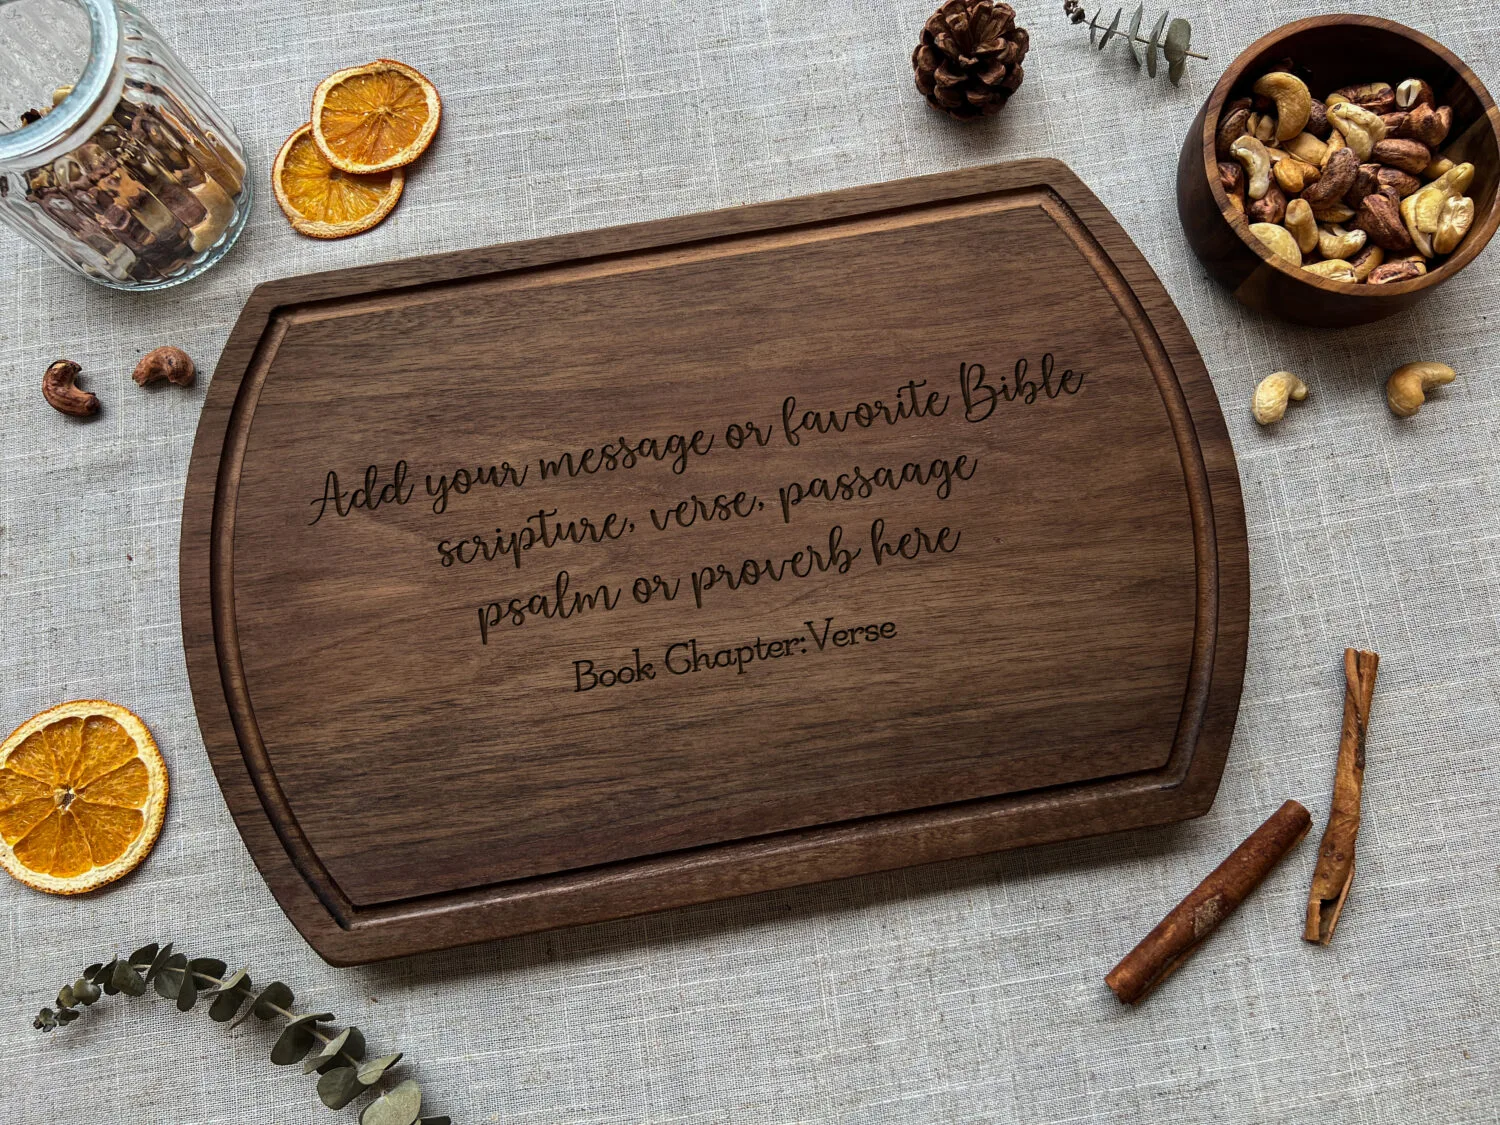 Add your message or favorite Bible
scripture, verse, passaage
psalm or proverb here
Book Chapter:Verse